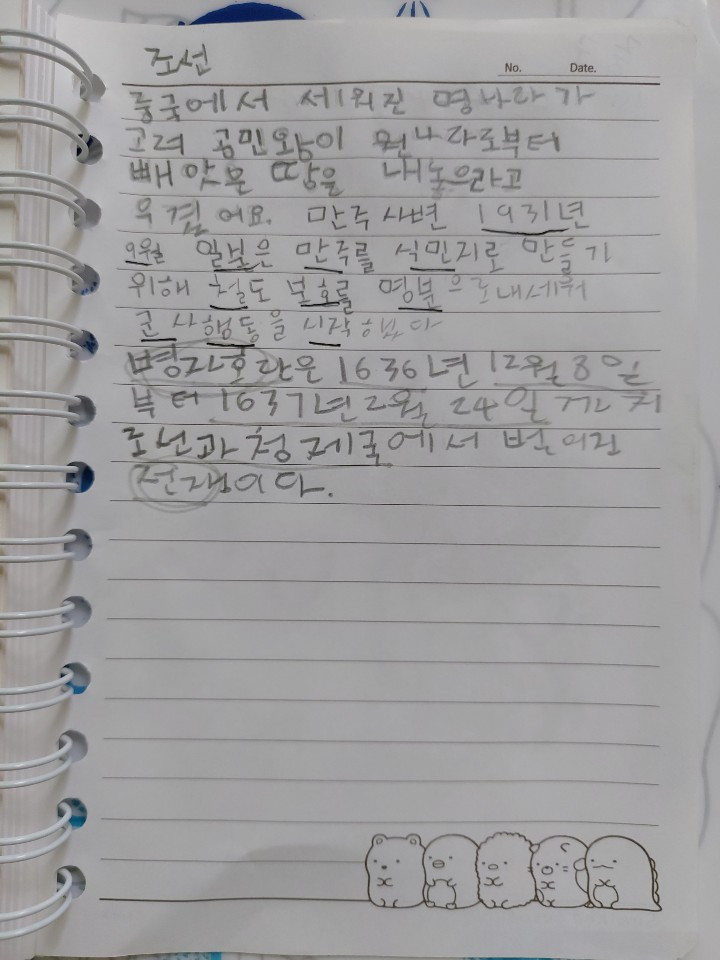 조선
No. Date.
중국에서 세워진 명나라가
고려 공민왕이 원나라로부터
빼앗은 땅을 내놓으라고
우겼어요. 만주사변 1931년
9월 일본은 만주를 식민지로 만들기
위해 철도 보호를 명분으로 내세워
군사행동을 시작했다
병자호란은 1636년 12월 8일
부터 1637년 2월 24일 까지
조선과 청제국에서 벌어진
전쟁이다.